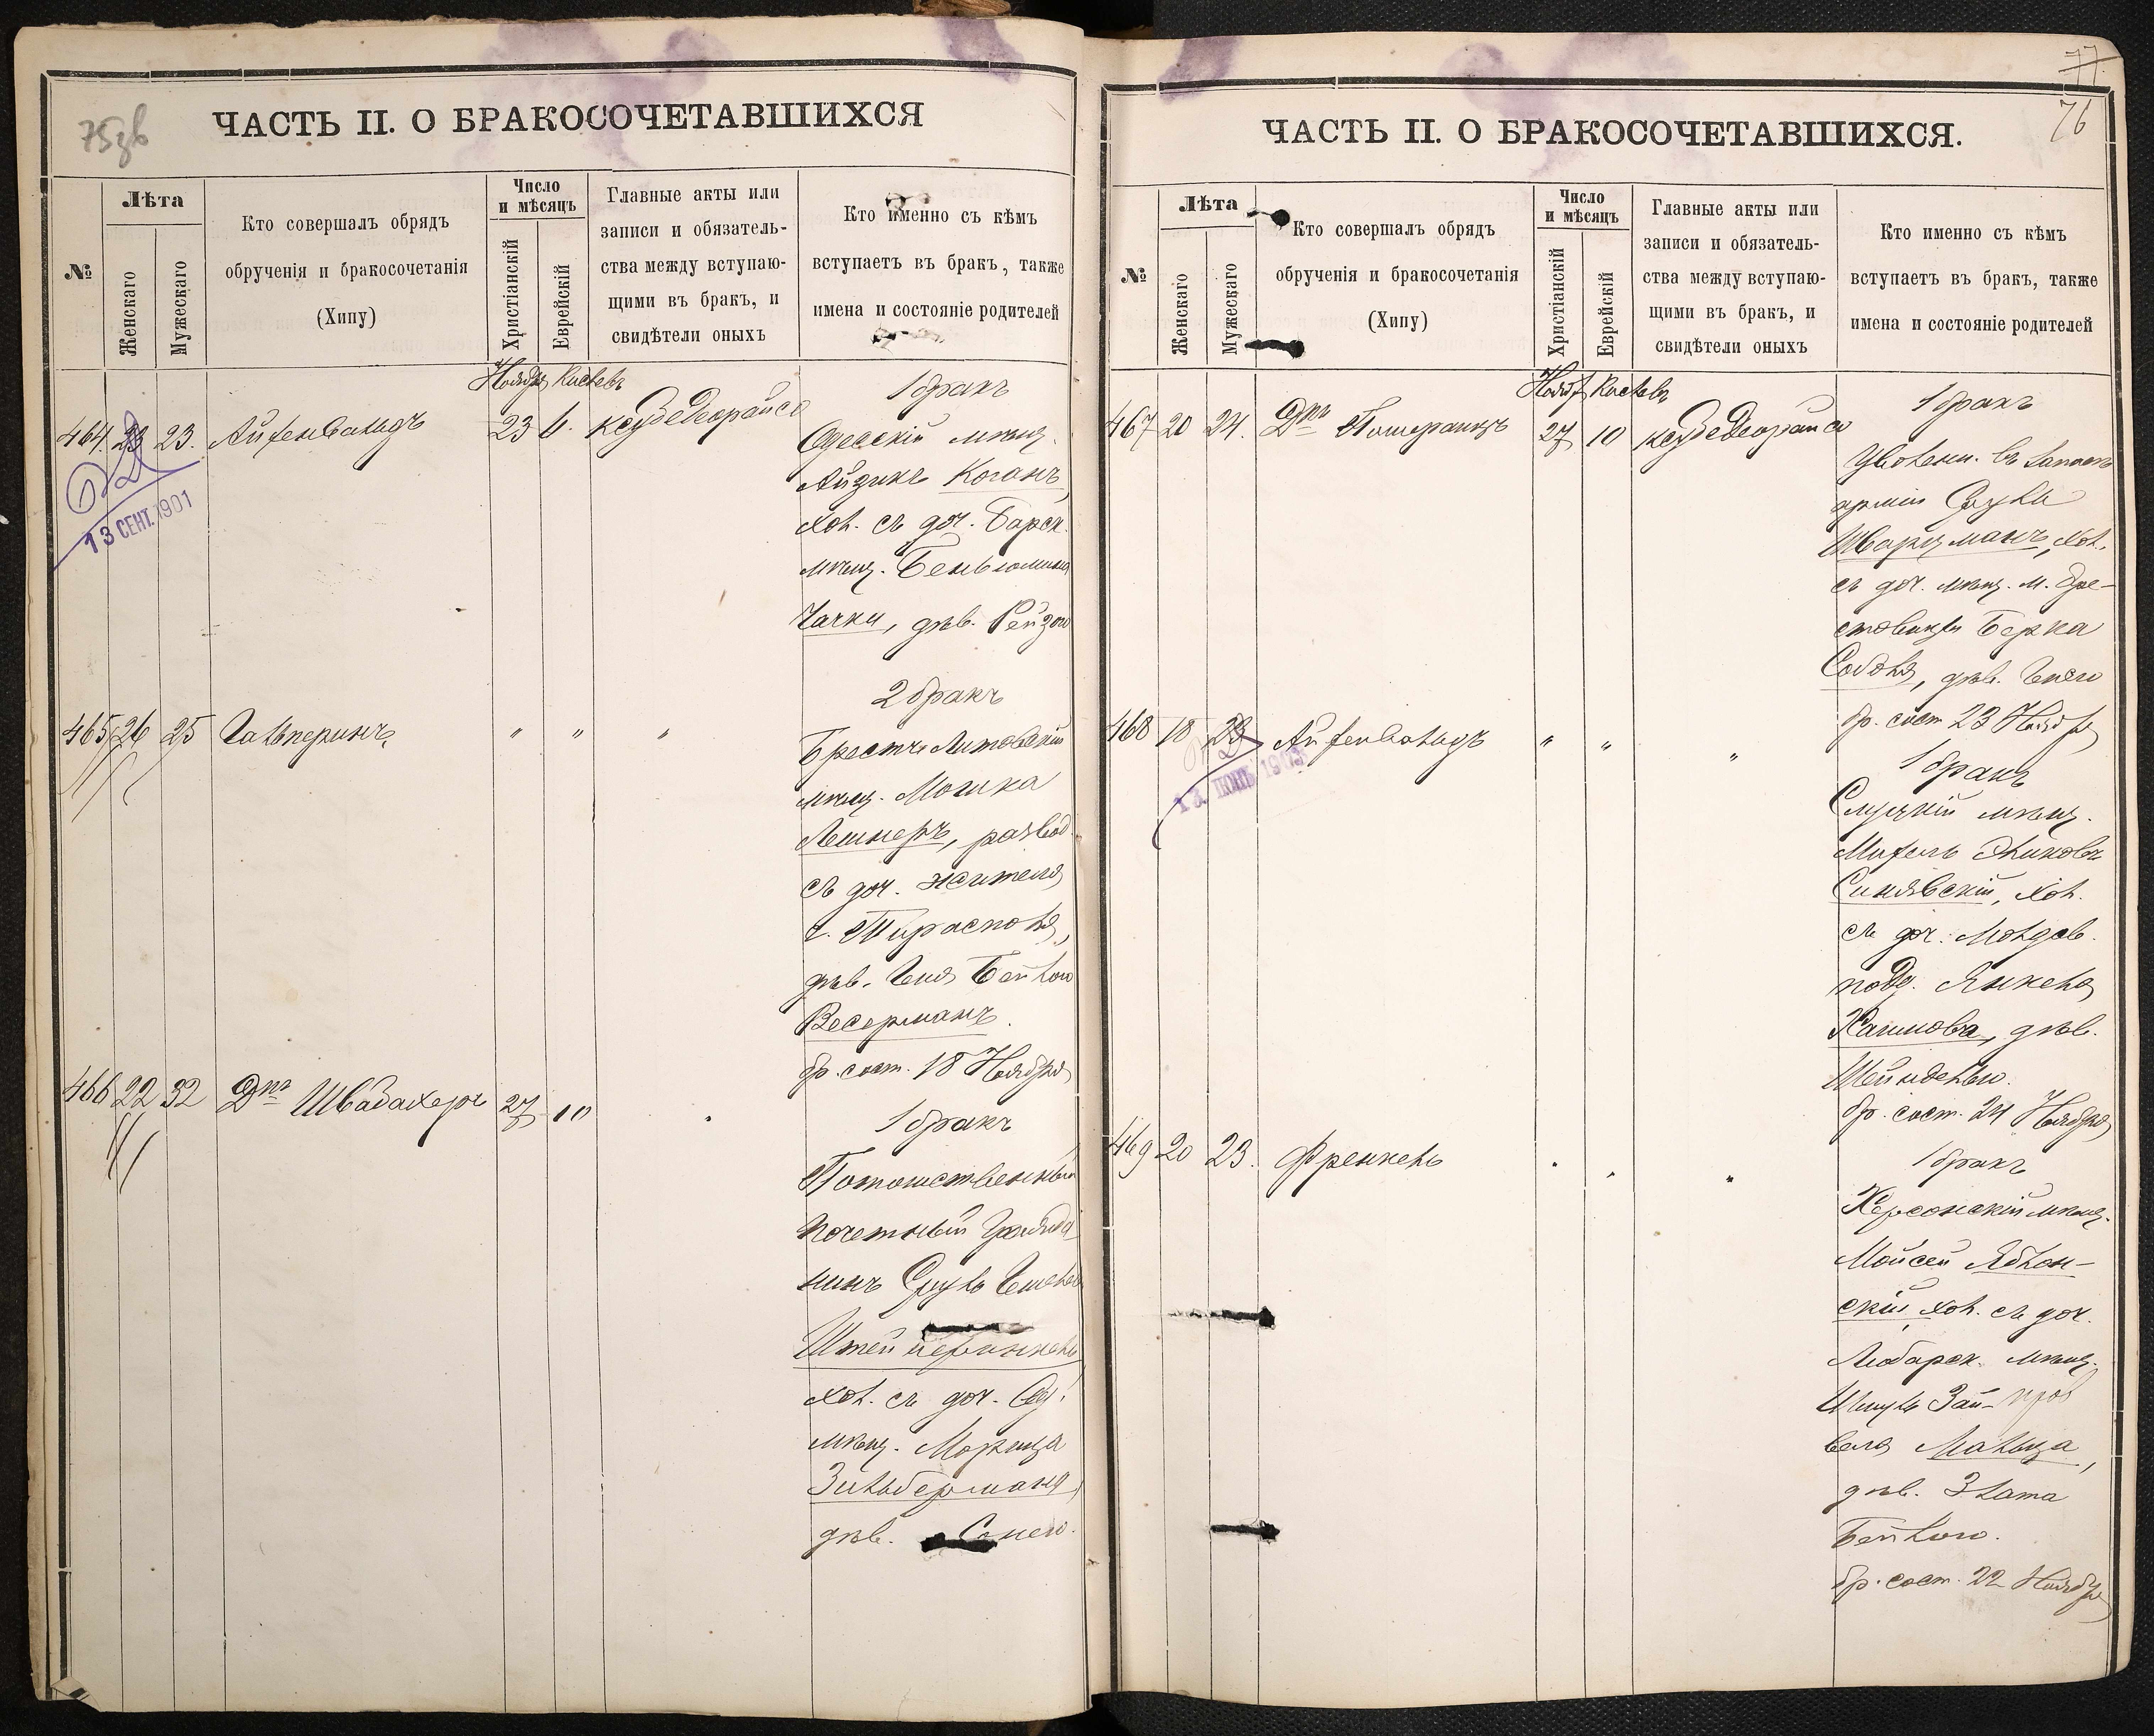 75об
ЧАСТЬ II. О БРАКОСОЧЕТАВШИХСЯ
№
Лѣта
Женскаго
Мужескаго
Кто совершалъ обрядъ
обрученія и бракосочетанія
(Хипу)
Число
и мѣсяцъ
Христіанскій
Еврейскій
Главные акты или
записи и обязатель-
ства между вступаю-
щими въ бракъ, и
свидѣтели оныхъ
Кто именно съ кѣмъ
вступаетъ въ бракъ, также
имена и состояніе родителей
Ноября Кислевъ
464. 23 23. Айзенвальдъ 23 6.
13 СЕНТ. 1901
1 бракъ
Одесскій мѣщ.
Айзикъ Коганъ,
хол. съ доч. Барск.
мѣщ. Беньюмина
Чачки, дѣв. Рейзою
465 26 25 Гальперинъ " " "
2 бракъ
Брестъ-Литовскій
мѣщ. Мошка
Лешнеръ, развод.
съ доч. жителя
г. Тирасполя,
дѣв. Геня Бейлою
Весерманъ.
бр. сост. 18 Ноября
466 22 32 Д-ръ Швабахеръ 27 10 "
1 бракъ
Потомственный
почетный гражда
нинъ Сруль
Штейнфинкель
хол. съ доч. Од.
мѣщ. Морица
Зильбермана,
дѣв. Сонею.
77
76
ЧАСТЬ II. О БРАКОСОЧЕТАВШИХСЯ.
№
Лѣта
Женскаго
Мужескаго
Кто совершалъ обрядъ
обрученія и бракосочетанія
(Хипу)
Число
и мѣсяцъ
Христіанскій
Еврейскій
Главные акты или
записи и обязатель-
ства между вступаю-
щими въ бракъ, и
свидѣтели оныхъ
Кто именно съ кѣмъ
вступаетъ въ бракъ, также
имена и состояніе родителей
Нояб. Кислевъ
467 20 24. Д-ръ Померанцъ 27 10
1 бракъ
Уволен. въ запасъ
арміи Сруль
Шварцманъ, хол.
съ доч. мѣщ. м. Бре-
стовицы Берка
Соболя, дѣв. Генею
бр. сост. 23 Ноября
468 18 23 Айзенвальдъ " " "
13 ІЮНЬ 1903
1 бракъ
Слуцкій мѣщ.
Синявскій, хол.
съ доч. Молдав.
подд. Янкеля
Хаимова, дѣв.
Шейнделью.
бр. сост. 24 Ноября
469 20 23. Френкель " " "
1 бракъ
Херсонскій мѣщ.
Мойсей Яблон-
скій, хол. съ доч.
Любарск. мѣщ.
Шмуль Зай-
вела Мальца,
дѣв. Злата
Бейлою.
бр. сост. 22 Ноября